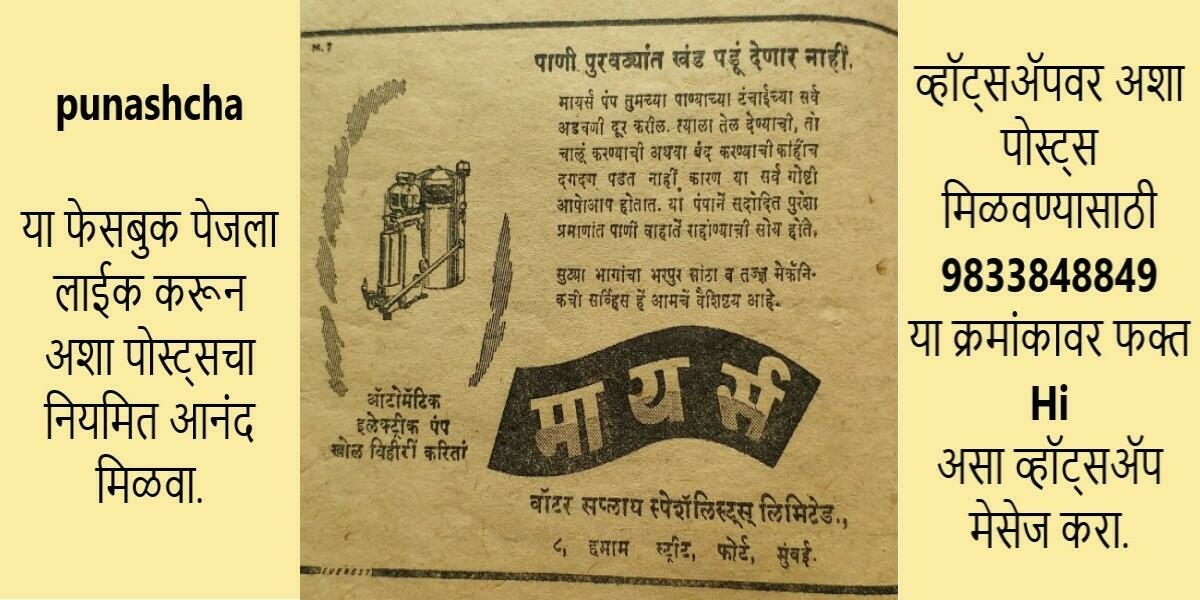 punashcha
या फेसबुक पेजला
लाईक करून
अशा पोस्ट्सचा
नियमित आनंद
मिळवा.
M. 7
पाणी पुरवठ्यांत खंड पडूं देणार नाहीं.
मायर्स पंप तुमच्या पाण्याच्या टंचाईच्या सर्व
अडचणी दूर करील. त्याला तेल देण्याची, तो
चालूं करण्याची अथवा बंद करण्याची कांहींच
दगदग पडत नाहीं. कारण या सर्व गोष्टी
आपोआप होतात. या पंपानें सदोदित पुरेशा
प्रमाणांत पाणी वाहातें राहाण्याची सोय होते.
सुट्या भागांचा भरपुर सांठा व तज्ज्ञ मेकॅनि-
कची सर्व्हिस हें आमचें वैशिष्ट्य आहे.
ऑटोमॅटिक
इलेक्ट्रीक पंप
खोल विहीरीं करितां
मायर्स
वॉटर सप्लाय स्पेशॅलिस्ट्स् लिमिटेड.,
८, हमाम स्ट्रीट, फोर्ट, मुंबई.
EVEREST
व्हॉट्सॲपवर अशा
पोस्ट्स
मिळवण्यासाठी
9833848849
या क्रमांकावर फक्त
Hi
असा व्हॉट्सॲप
मेसेज करा.